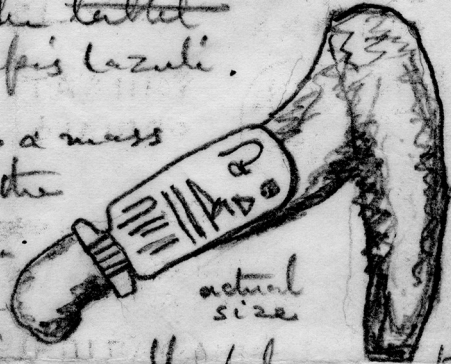 the tablet
pis lazuli.
a mass
the
actual
size